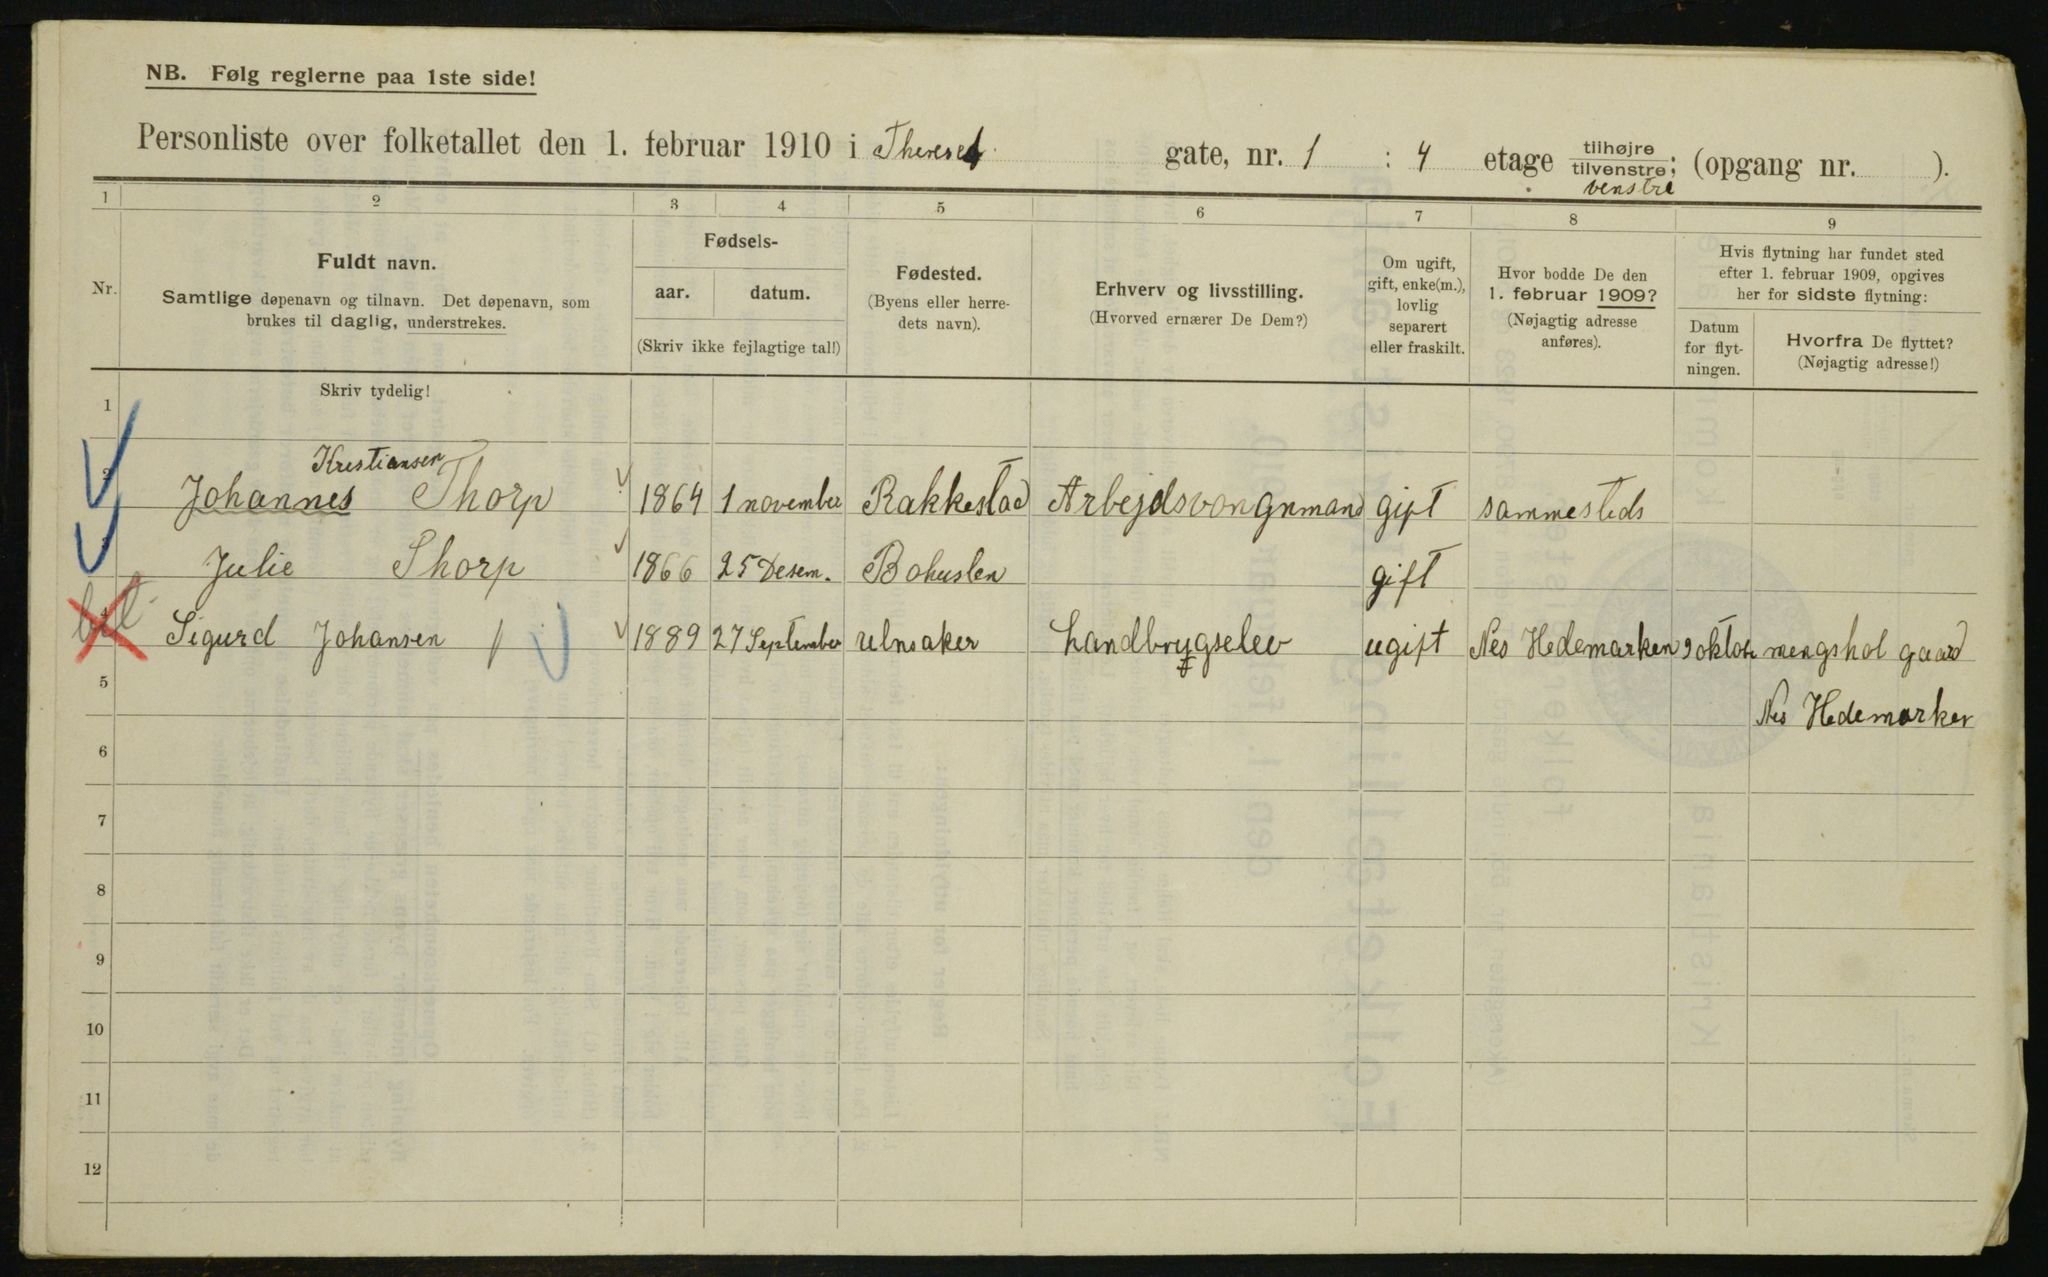 NB. Følg reglerne paa 1ste side!
Personliste over folketallet den 1. februar 1910 i Therese gate, nr. 1 : 4 etage tilhøjre tilvenstre; (opgang nr. ).
venstre
1 2 3 4 5 6 7 8 9
Nr.
Fuldt navn.
Samtlige døpenavn og tilnavn. Det døpenavn, som
brukes til daglig, understrekes.
Skriv tydelig!
Fødsels-
aar. datum.
(Skriv ikke fejlagtige tal!)
Fødested.
(Byens eller herre-
dets navn).
Erhverv og livsstilling.
(Hvorved ernærer De Dem?)
Om ugift,
gift, enke(m.),
lovlig
separert
eller fraskilt.
Hvor bodde De den
1. februar 1909?
(Nøjagtig adresse
anføres).
Hvis flytning har fundet sted
efter 1. februar 1909, opgives
her for sidste flytning:
Datum
for flyt-
ningen.
Hvorfra De flyttet?
(Nøjagtig adresse!)
1
Kristiansen
2 Johannes Thorp 1864 1 november Rakkestad Arbejdsvongnmand gift sammesteds
3 Julie Thorp 1866 25 Desem. Bohuslen gift
4 Sigurd Johansen 1889 27 September Ulnsaker Landbrygselev ugift Nes Hedemarken 9 oktob mengshol gaard
5 Nes Hedemarken
6
7
8
9
10
11
12